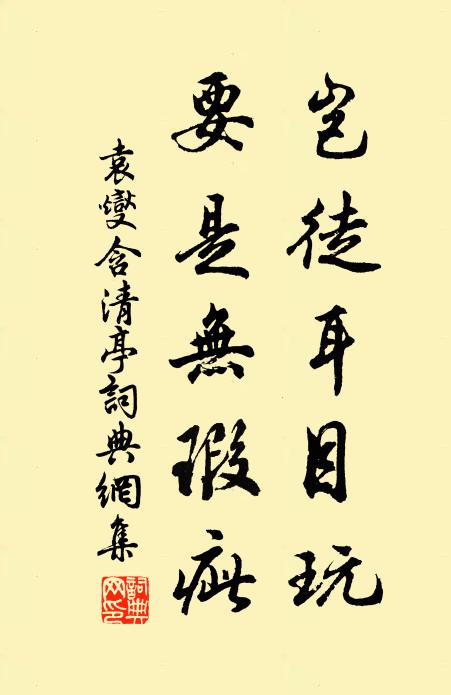 豈徒耳目玩
要是無瑕疵
袁燮含清亭詞典網集
詞典網印